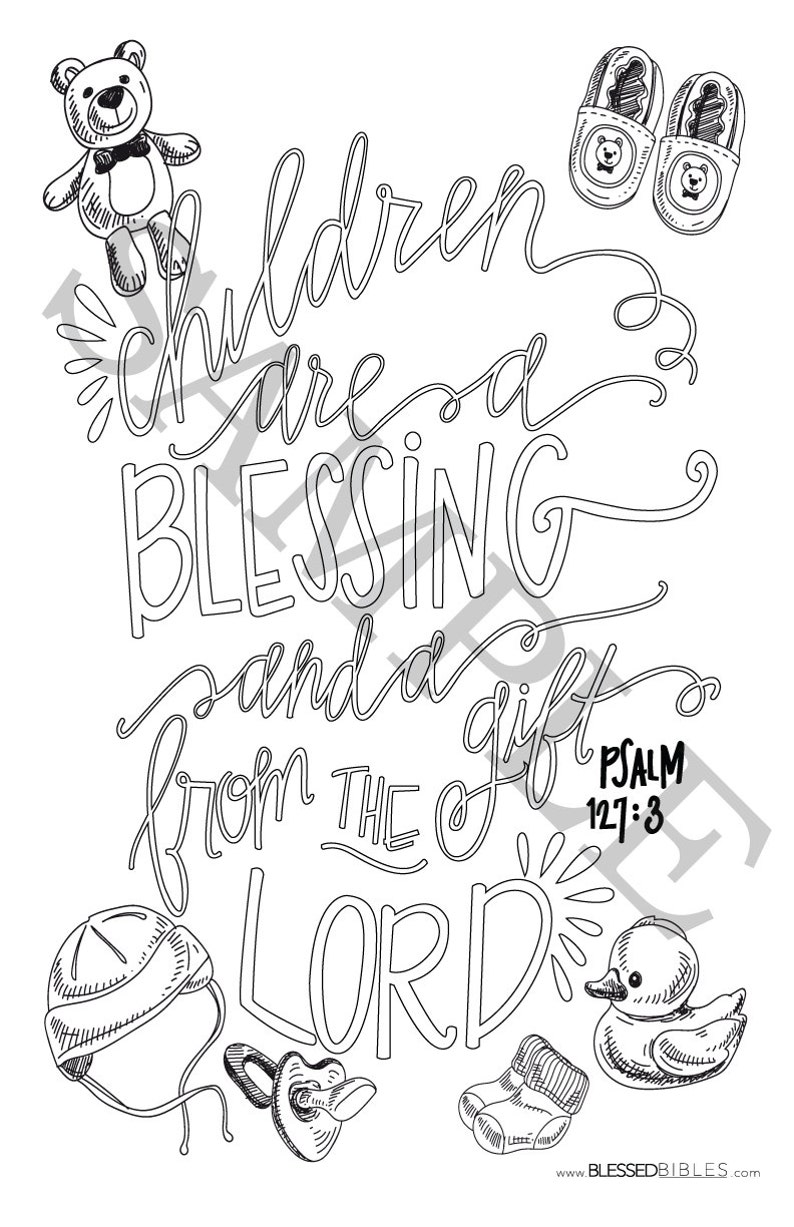 children
are a
BLESSING
and a
gift
from THE
LORD
PSALM
127:3
SAMPLE
www.BLESSEDBIBLES.com